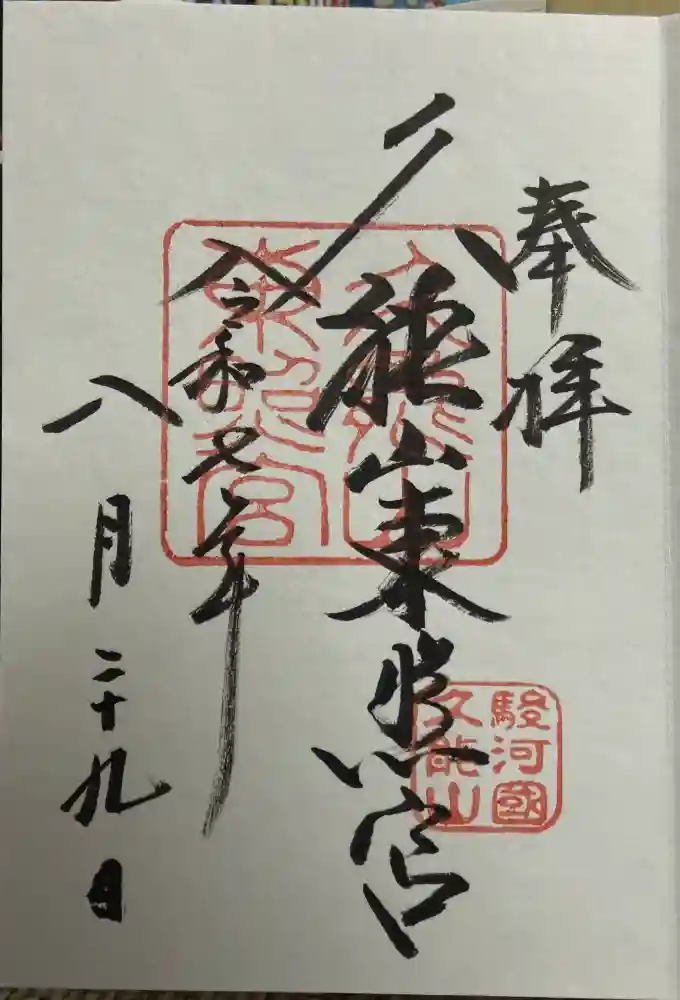 奉拝
久能山東照宮
令和七年
八月二十九日
久能山
東照宮
駿河國
久能山